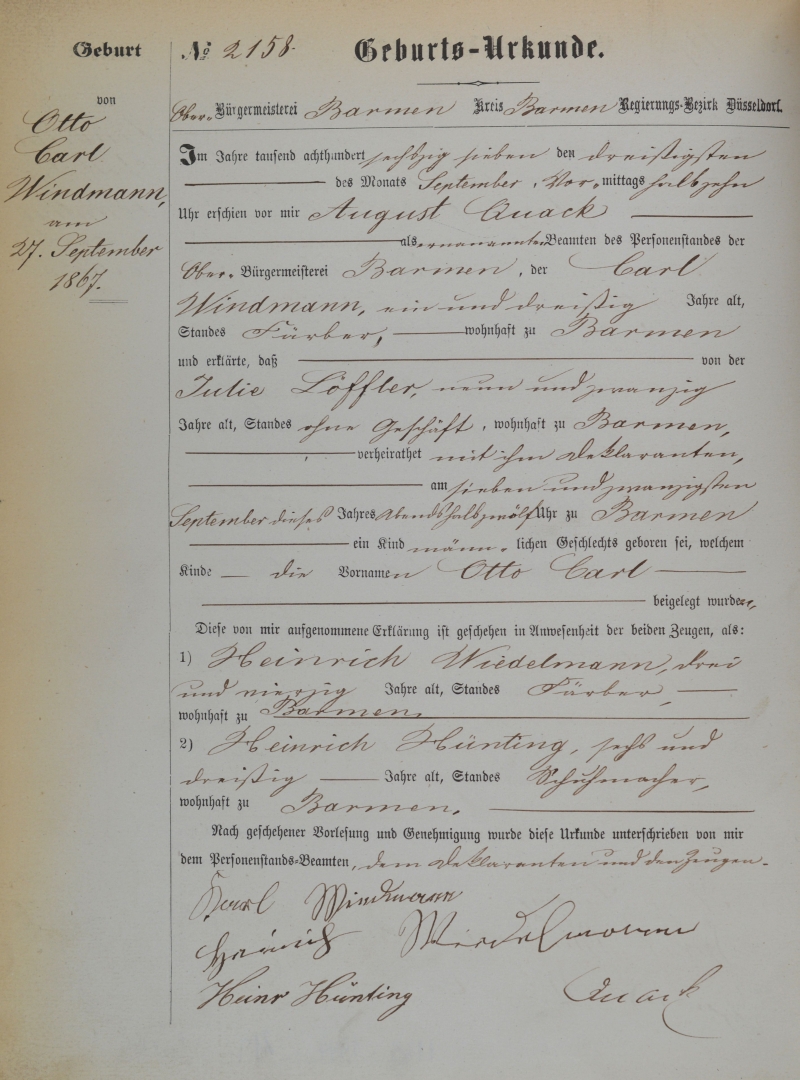 Geburt
von
Otto
Carl
Windmann,
am
27. September
1867.
No 2158. Geburts-Urkunde.
Ober-Bürgermeisterei Barmen Kreis Barmen Regierungs-Bezirk Düsseldorf.
Im Jahre tausend achthundert sechszig sieben den dreißigsten
des Monats September, Vormittags halbzehn
Uhr erschien vor mir August Quack
als ernannten Beamten des Personenstandes der
Ober-Bürgermeisterei Barmen, der Carl
Windmann, ein und dreißig Jahre alt,
Standes Färber, wohnhaft zu Barmen
und erklärte, daß von der
Julie Löffler, neun und zwanzig
Jahre alt, Standes ohne Geschäft, wohnhaft zu Barmen,
verheirathet mit ihm Deklaranten,
am sieben und zwanzigsten
September dieses Jahres Abends halbzwölf Uhr zu Barmen
ein Kind männlichen Geschlechts geboren sei, welchem
Kinde die Vornamen Otto Carl
beigelegt wurden,
Diese von mir aufgenommene Erklärung ist geschehen in Anwesenheit der beiden Zeugen, als:
1) Heinrich Wiedelmann, drei
und vierzig Jahre alt, Standes Färber,
wohnhaft zu Barmen.
2) Heinrich Hünting, sechs und
dreißig Jahre alt, Standes Schuhmacher,
wohnhaft zu Barmen.
Nach geschehener Vorlesung und Genehmigung wurde diese Urkunde unterschrieben von mir
dem Personenstands-Beamten, dem Deklaranten und den Zeugen.
Karl Windmann
Heinrich Wiedelmann
Heinr Hünting Quack